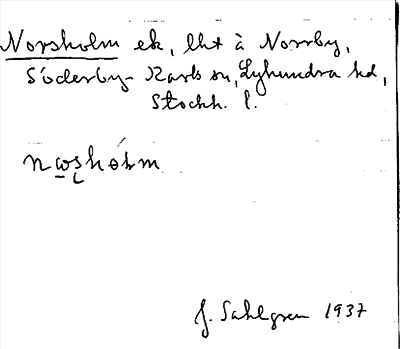 Norsholm ek, lht å Norrby,
Söderby-Karls sn, Lyhundra hd,
Stockh. l.
J. Sahlgren 1937